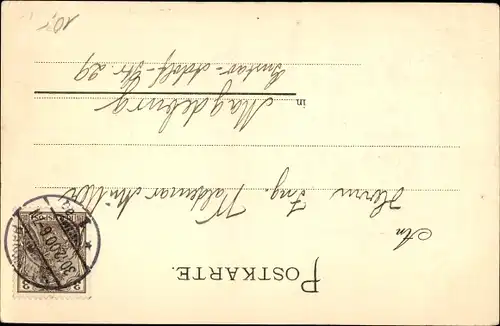 POSTKARTE.
An
Herrn Ing. Waldemar Müller
in Magdeburg
Gustav-Adolf-Str. 29
10,-
3